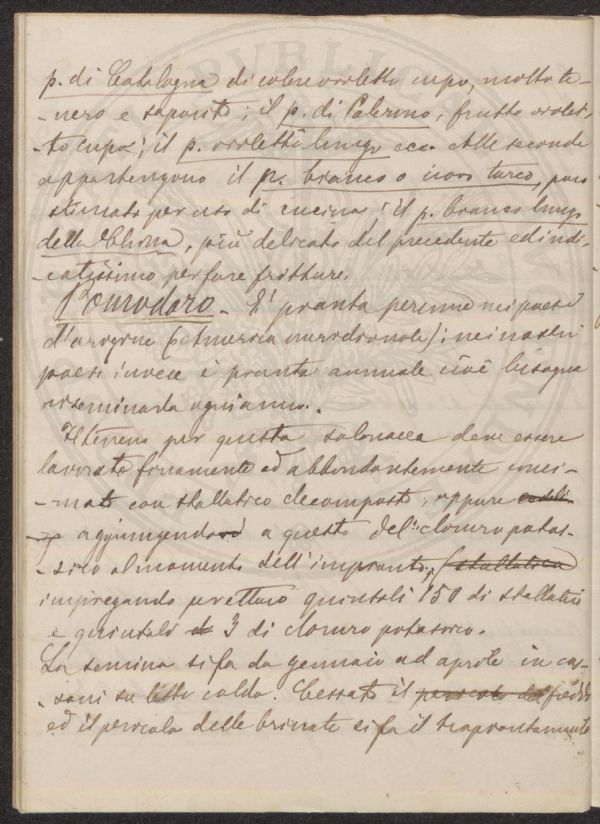 p. di Catalogna di colore violetto cupo, molto te-
-nero e saporito; il p. di Palermo, frutto violet-
-to cupo; il p. violetto lungo ecc. Alle seconde
appartengono il p. bianco o uovo turco, poco
stimato per uso di cucina; il p. bianco lungo
della China, più delicato del precedente ed indi-
-catissimo per fare fritture.
Pomodoro - E' pianta perenne nei paesi
d'origine (America meridionale); nei nostri
paesi invece è pianta annuale cioè bisogna
riseminarla ogni anno.
Il terreno per questa solanacea deve essere
lavorato finamente ed abbondantemente conci-
-mato con stallatico decomposto, oppure
aggiungendo a questo del cloruro potas-
-sico al momento dell'impianto, (stallatico
impiegando per ettaro quintali 150 di stallatico
e quintali 3 di cloruro potassico.
La semina si fa da gennaio ad aprile in cas-
-soni su letto caldo. Cessato il pericolo del freddo
ed il pericolo delle brinate si fa il trapiantamento